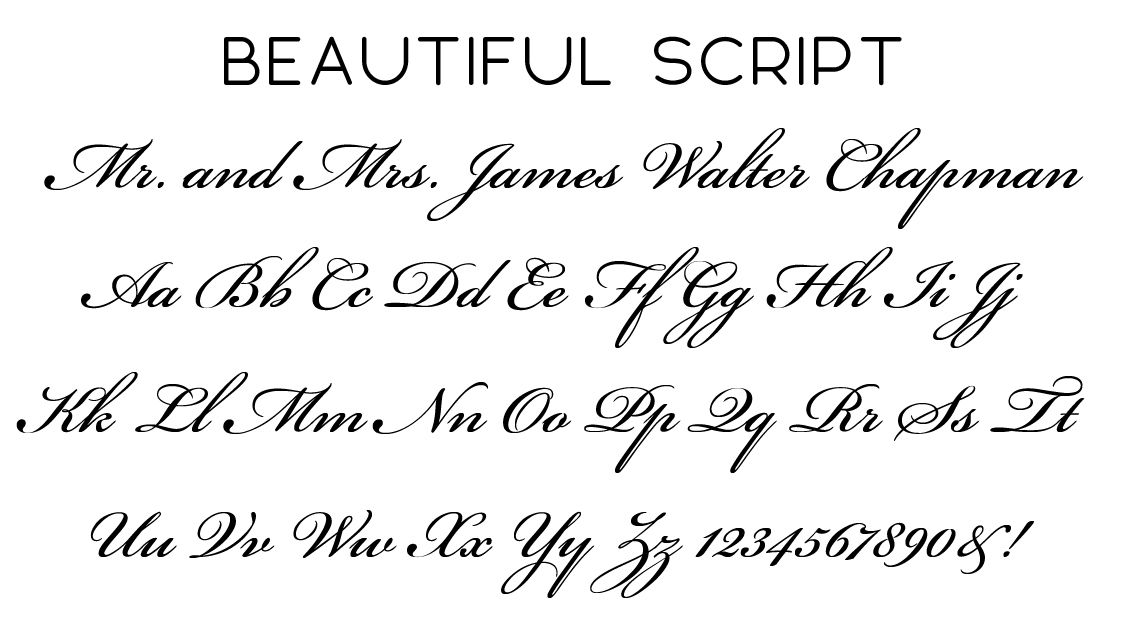 BEAUTIFUL SCRIPT
Mr. and Mrs. James Walter Chapman
Aa Bb Cc Dd Ee Ff Gg Hh Ii Jj
Kk Ll Mm Nn Oo Pp Qq Rr Ss Tt
Uu Vv Ww Xx Yy Zz 1234567890&!